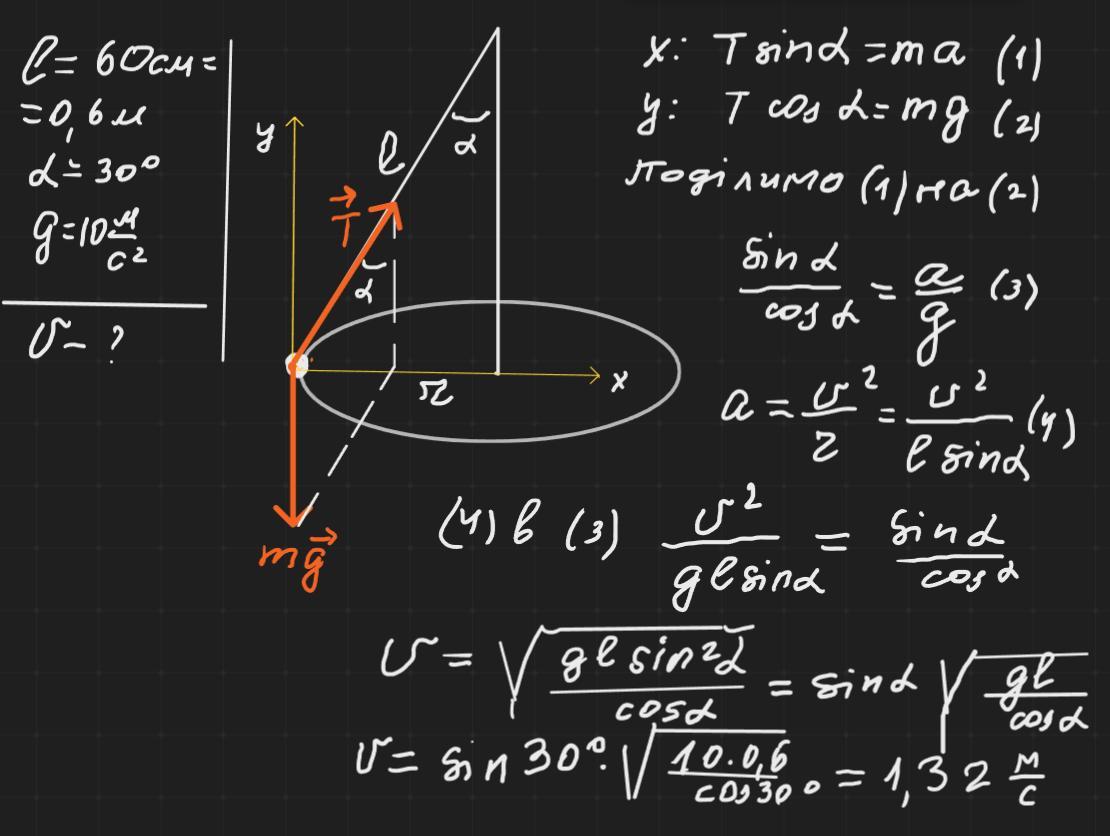 l = 60см =
= 0,6 м
α = 30°
g = 10 м/с²
υ - ?
y
l
α
T⃗
α
r
x
mg⃗
x: T sinα = ma (1)
y: T cosα = mg (2)
поділимо (1) на (2)
sinα/cosα = a/g (3)
a = υ²/r = υ²/(l sinα) (4)
(4) в (3) υ²/(gl sinα) = sinα/cosα
υ = √(gl sin²α/cosα) = sinα √(gl/cosα)
υ = sin30° · √(10·0,6/cos30°) = 1,32 м/с